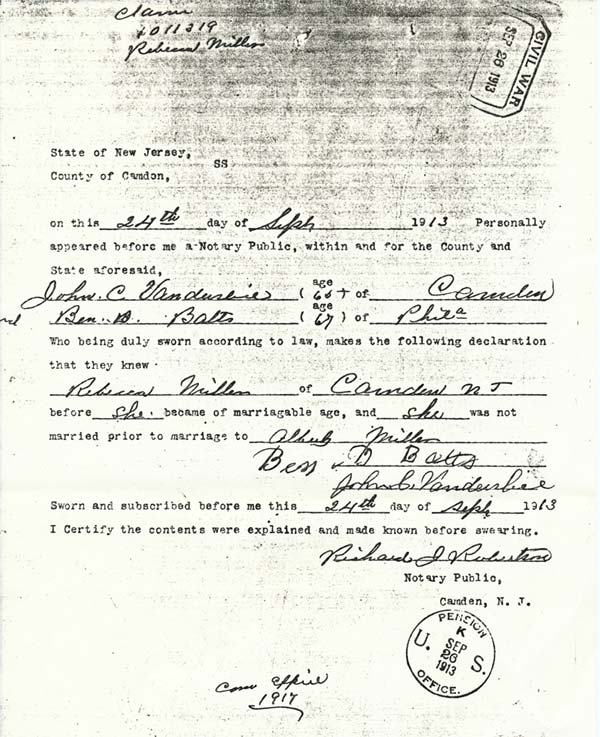 Claim
1011319
Rebecca Miller
CIVIL WAR
SEP 26 1913
State of New Jersey,
SS
County of Camdon,
on this 24th day of Seph 1913 Personally
appeared before me a Notary Public, within and for the County and
State aforesaid,
age
John. C. Vanderslice ( 65 + of Camden
age
Ben. D. Batts ( 67 ) of Phila
Who being duly sworn according to law, makes the following declaration
that they knew
Rebecca Miller of Camden N J
before she became of marriagable age, and she was not
married prior to marriage to Albert Miller
Benj D Batts
John C. Vanderslice
Sworn and subscribed before me this 24th day of Seph 1913
I Certify the contents were explained and made known before swearing.
Richard J Robertson
Notary Public,
Camden, N. J.
PENSION
K
U. S.
SEP
26
1913
OFFICE.
1917